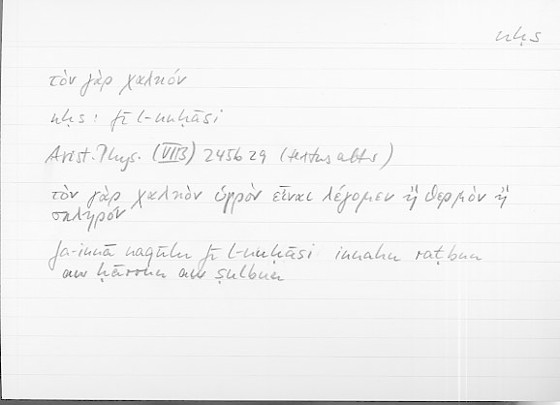 nḥs
τὸν γὰρ χαλκόν
nḥs : fī l-nuḥāsi
Arist. Phys. (VII3) 245b29 (textus alter)
τὸν γὰρ χαλκὸν ὑγρὸν εἶναι λέγομεν ἢ θερμὸν ἢ
σκληρόν
fa-innā naqūlu fī l-nuḥāsi innahu raṭbun
aw ḥārrun aw ṣulbun